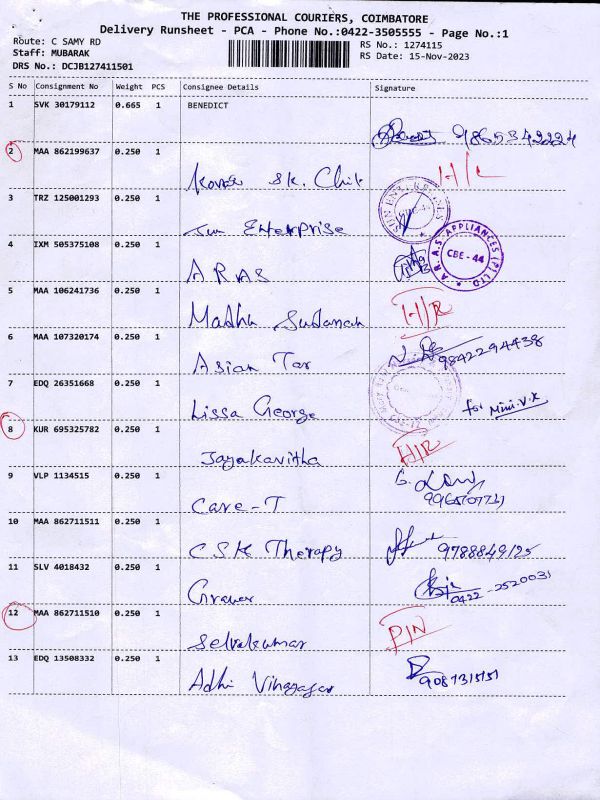 THE PROFESSIONAL COURIERS, COIMBATORE
Delivery Runsheet - PCA - Phone No.:0422-3505555 - Page No.:1
Route: C SAMY RD
Staff: MUBARAK
DRS No.: DCJB127411501
RS No.: 1274115
RS Date: 15-Nov-2023
S No Consignment No Weight PCS Consignee Details Signature
1 SVK 30179112 0.665 1 BENEDICT
9865342224
2 MAA 862199637 0.250 1
Sk. Chit H/L
3 TRZ 125001293 0.250 1
Sun Enterprise
4 IXM 505375108 0.250 1
ARAS
A.R.A.S APPLIANCES (P) LTD
CBE - 44
5 MAA 106241736 0.250 1
Madhu Sudanan H/R
6 MAA 107320174 0.250 1
Asian Tar 9842294438
7 EDQ 26351668 0.250 1
Lissa George for Mini.V.X
8 KUR 695325782 0.250 1
Jayakavitha H/R
9 VLP 1134515 0.250 1
Care-T
10 MAA 862711511 0.250 1
CSK Therapy 9788849125
11 SLV 4018432 0.250 1
0422-2520031
12 MAA 862711510 0.250 1
Selvakumar P/N
13 EDQ 13508332 0.250 1
Adhi Vinayagar 9087315151